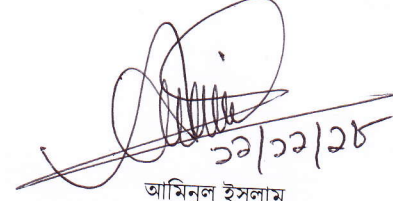 ১১/১১/১৮
আমিনুল ইসলাম